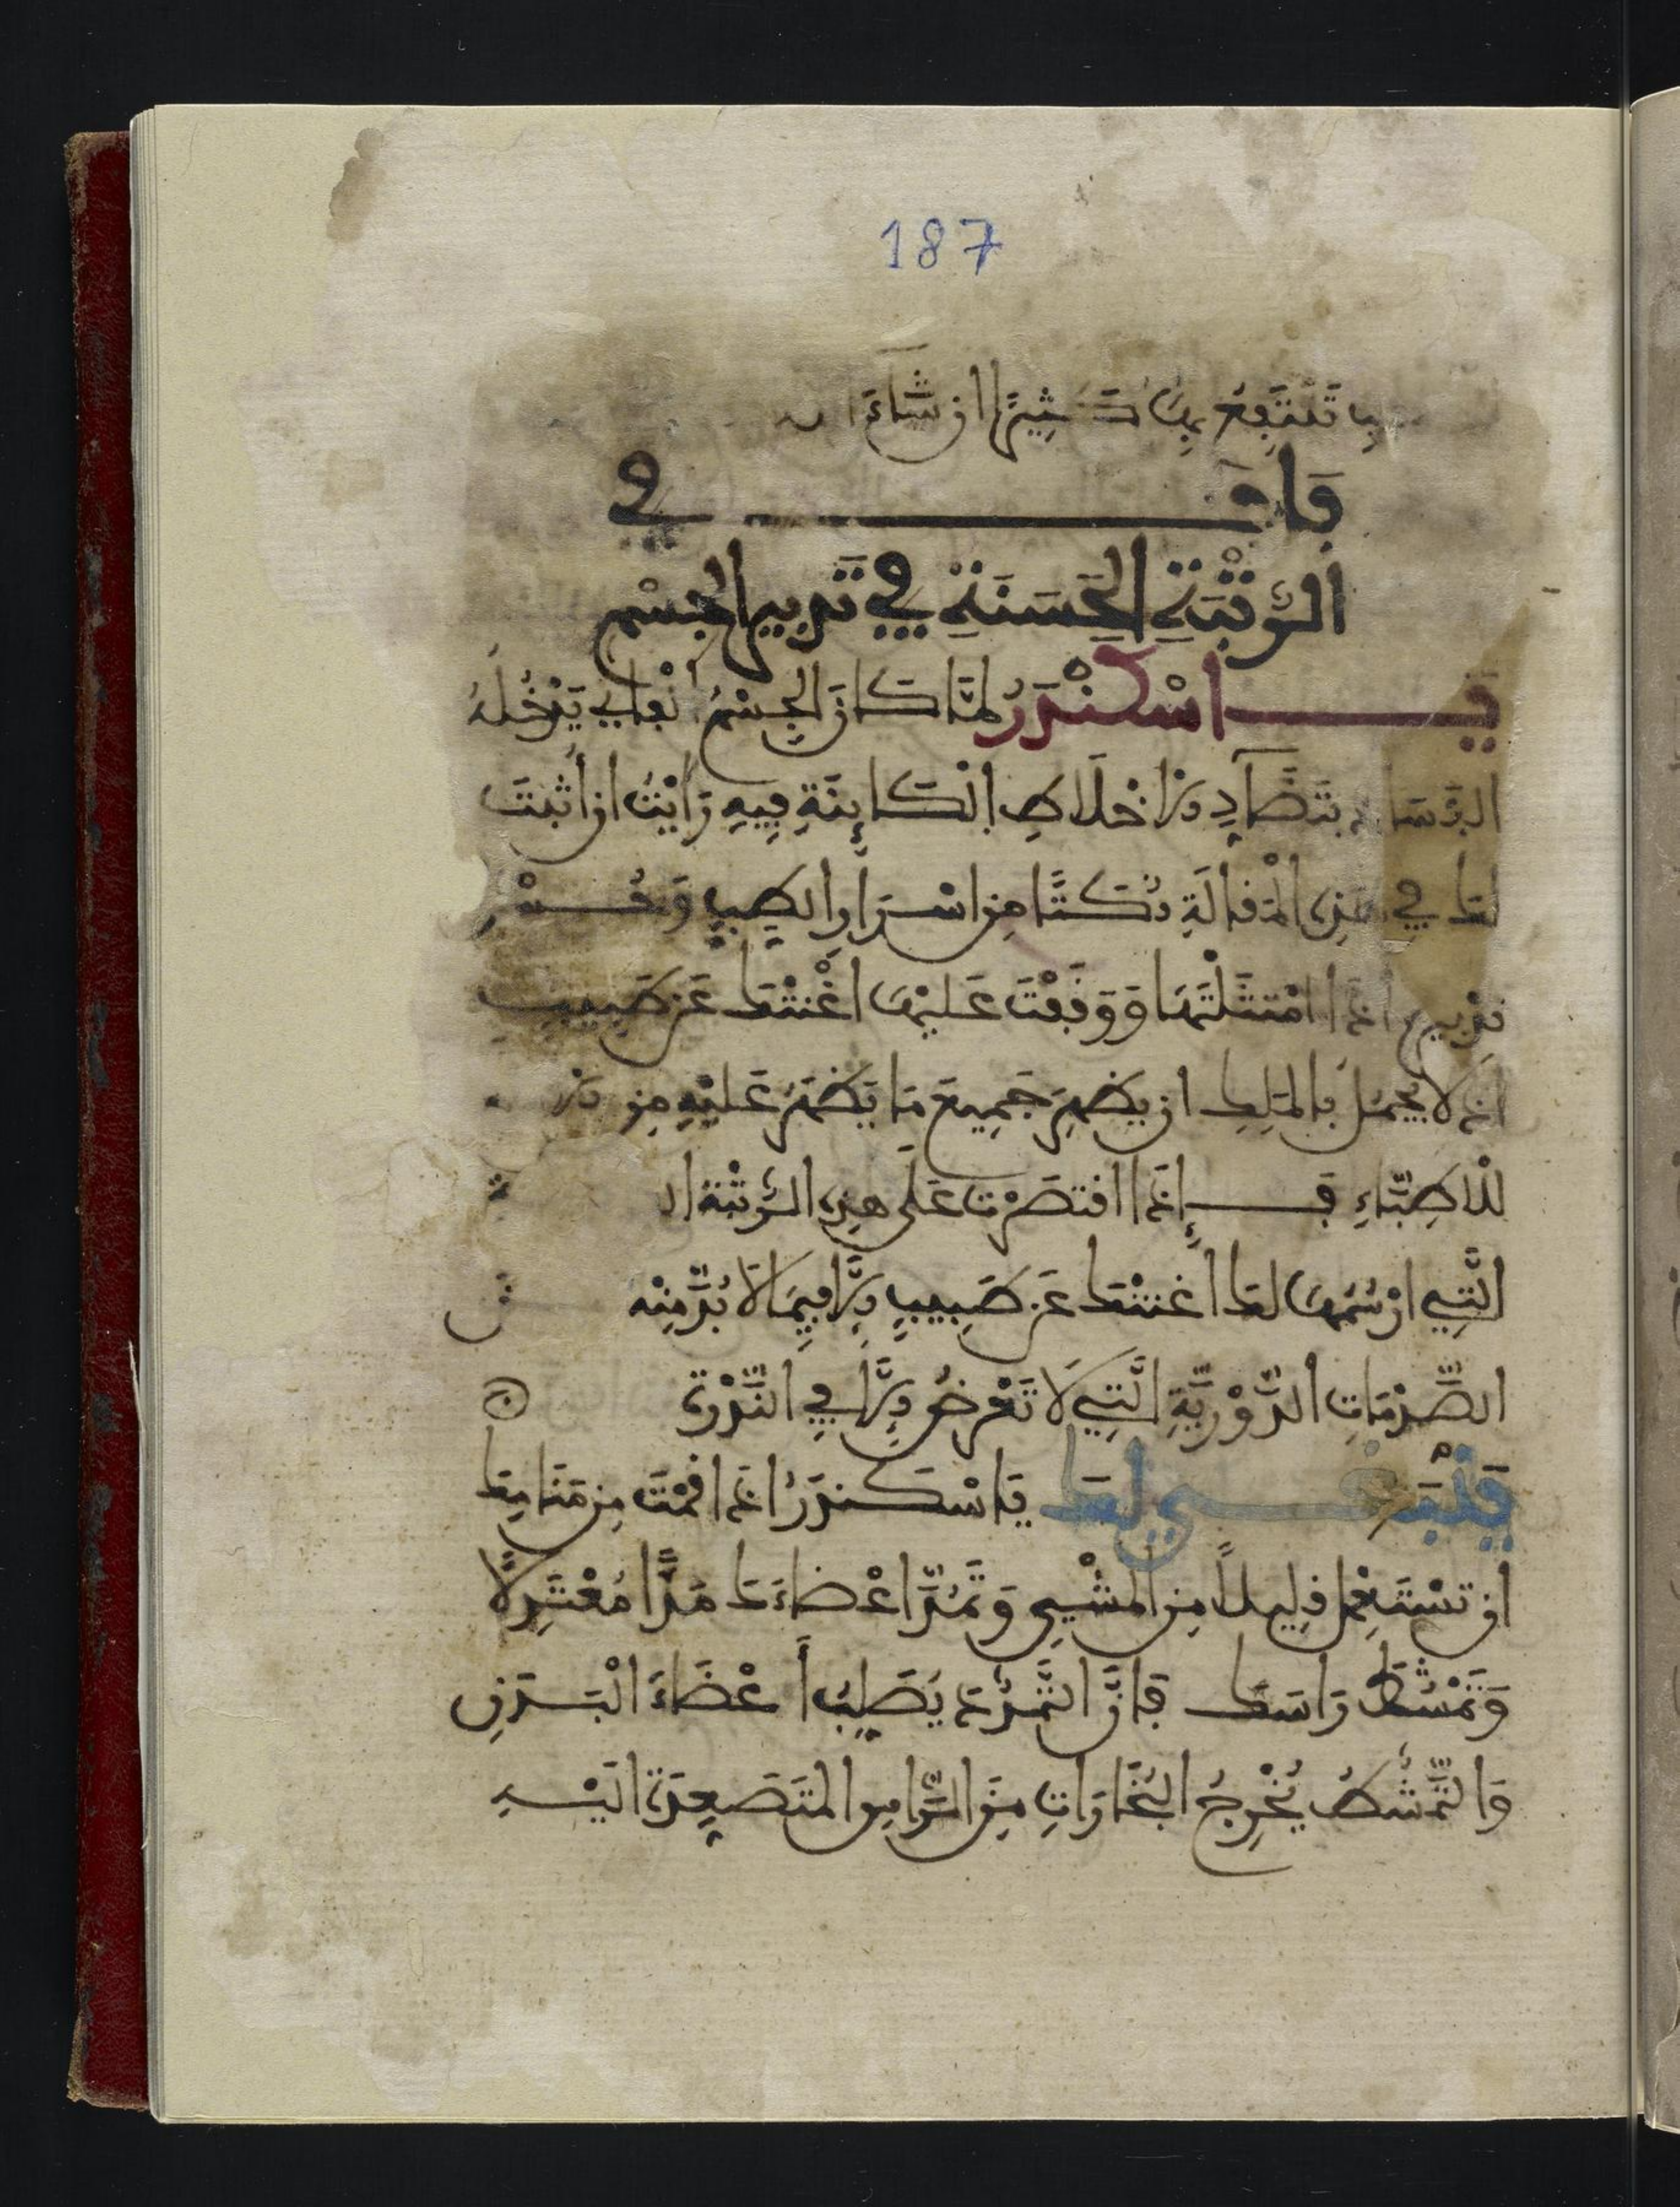 187
تَنْتَفِعُ بِهَا كَثِيرًا اِن شَآءَ
بَابٌ فِي
الرُّتْبَةِ الْحَسَنَةِ فِي تَدْبِيرِ الْجِسْمِ
يَا اسْكَنْدَرُ لَمَّا كَانَ الْجِسْمُ يَدْخُلُهُ
بِتَضَآدِدِ الاخْلَاطِ الْكَائِنَةِ فِيهِ رَأَيْتُ ان أُثْبِتَ
لك فِي هَذِهِ الْمَقَالَةِ نُكَتًا مِن اسْرَارِ الطِّبِّ
اذَا امْتَثَلْتَهَا وَوَقَفْتَ عَلَيْهَا اغْنَتْكَ عَن طَبِيبٍ
اذ لا يَجْمُلُ بِالْمَلِكِ ان يُظْهِرَ جَمِيعَ مَا يَظْهَرُ عَلَيْهِ مِن
لِلْاطِبَّاءِ فَإِذَا اقْتَصَرْتَ عَلَى هَذِهِ الرُّتْبَةِ
الَّتِي ارْسُمُهَا لك أَغْنَتْكَ عَن طَبِيبٍ إِلَّا فِيمَا لَا بُدَّ مِنْهُ
الصَّدْمَاتِ الدَّوْرِيَّةِ الَّتِي لَا تَعْرِضُ إِلَّا فِي النَّدْرَةِ
فَيَنْبَغِي لَكَ يَا اسْكَنْدَرُ اذَا قُمْتَ مِن مَنَامِكَ
ان تَسْتَعْمِلَ قَلِيلًا مِن الْمَشْيِ وَتَمُدَّ اعْضَاءَكَ مَدًّا مُعْتَدِلًا
وَتَمْشُطَ رَاسَكَ فَانَّ التَّمَدُّدَ يُصَلِّبُ أَعْضَاءَ الْبَدَنِ
وَالتَّمَشُّطُ يُخْرِجُ الْبُخَارَاتِ مِنَ الرَّاسِ الْمُتَصَعِّدَةَ الَيْهِ